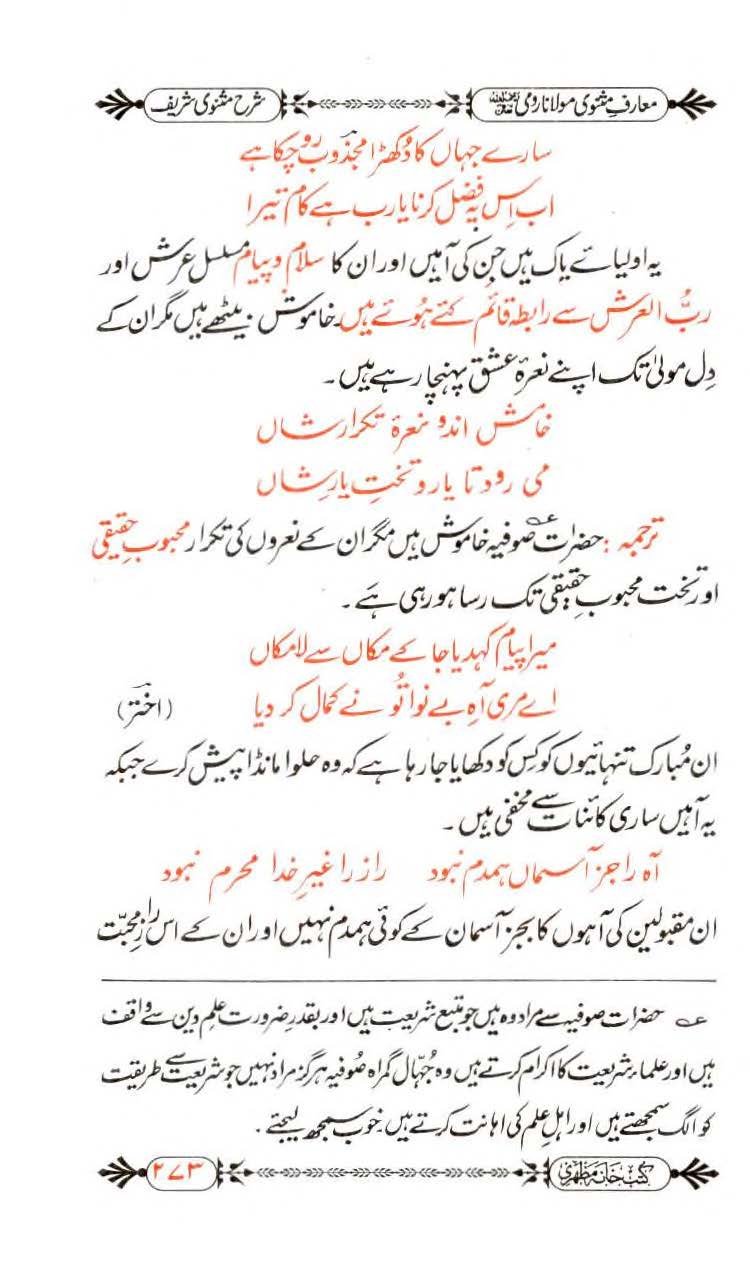 معارفِ مثنوی مولانا رومی رحمۃ اللہ علیہ
شرح مثنوی شریف
سارے جہاں کا دُکھڑا مجذوبؔ رو چکا ہے
اب اِس پہ فضل کرنا یارب ہے کام تیرا
یہ اولیائے پاک ہیں جن کی آہیں اور ان کا سلام و پیام مسلسل عرش اور
ربُّ العرش سے رابطہ قائم کئے ہُوئے ہیں۔ خاموش بیٹھے ہیں مگر ان کے
دِل مولیٰ تک اپنے نعرۂ عشق پہنچا رہے ہیں۔
خامش اند و نعرۂ تکرارِ شاں
می رود تا یار و تختِ یارِ شاں
ترجمہ: حضراتِ صوفیہ عہ خاموش ہیں مگر ان کے نعروں کی تکرار محبوبِ حقیقی
اور تخت محبوبِ حقیقی تک رسا ہو رہی ہَے۔
میرا پیام کہدیا جا کے مکاں سے لامکاں
اے مری آہِ بے نوا تُو نے کمال کر دیا (اخترؔ)
ان مُبارک تنہائیوں کو کِس کو دکھایا جا رہا ہے کہ وہ حلوا مانڈا پیش کرے جبکہ
یہ آہیں ساری کائنات سے مخفی ہیں۔
آہ را جز آسماں ہمدم نبود راز را غیرِ خدا محرم نبود
ان مقبولین کی آہوں کا بجز آسمان کے کوئی ہمدم نہیں اور ان کے اس رازِ محبّت
عہ حضرات صوفیہ سے مراد وہ ہیں جو متبع شریعت ہیں اور بقدرِ ضرورت علمِ دین سے واقف
ہیں اور علماءِ شریعت کا اکرام کرتے ہیں وہ جُہّال گمراہ صُوفیہ ہرگز مراد نہیں جو شریعت سے طریقت
کو الگ سمجھتے ہیں اور اہلِ علم کی اہانت کرتے ہیں۔ خوب سمجھ لیجئے۔
کتب خانہ مظہری
۲۷۳